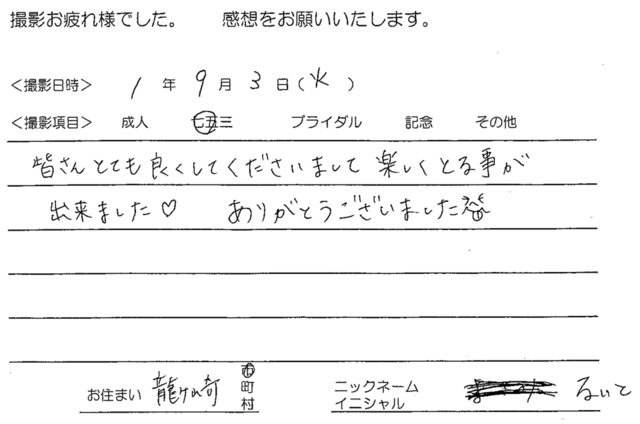 撮影お疲れ様でした。　感想をお願いいたします。
＜撮影日時＞　1 年 9 月 3 日（火）
＜撮影項目＞　成人　七五三　ブライダル　記念　その他
皆さんとても良くしてくださいまして 楽しくとる事が
出来ました♡　ありがとうございました
お住まい　龍ケ崎　市町村　ニックネーム イニシャル　るいと